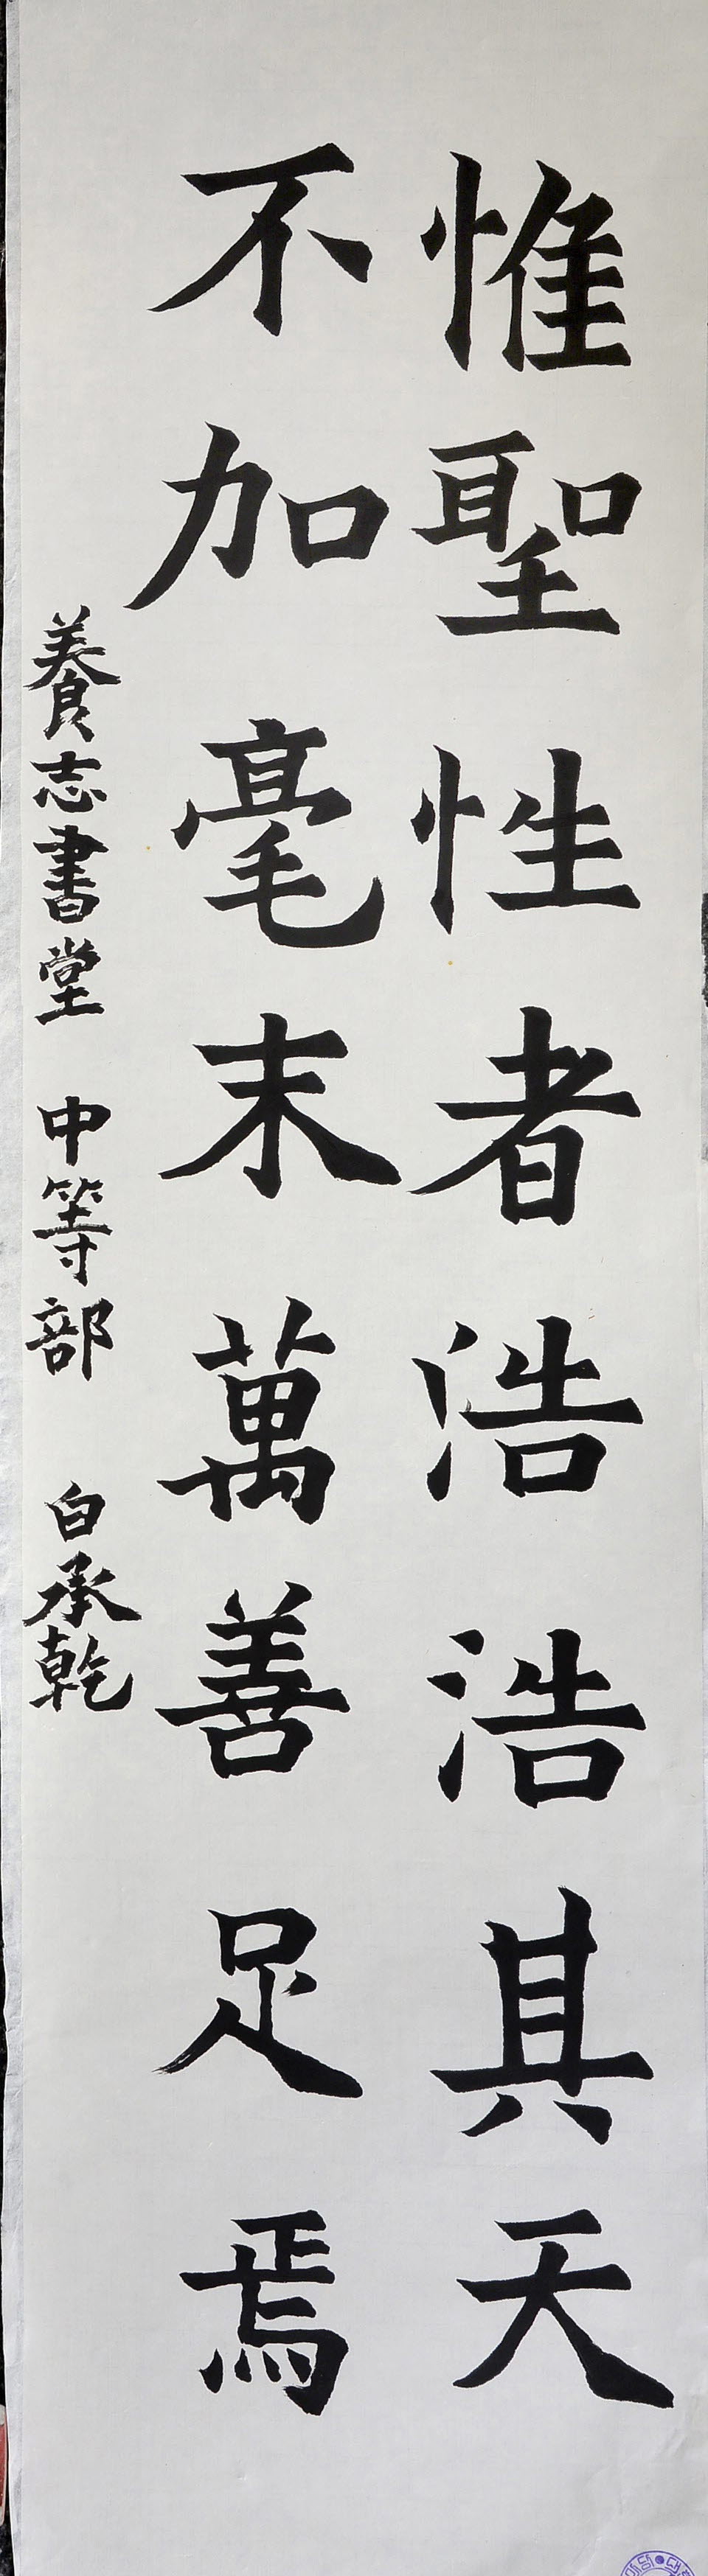 惟聖性者浩浩其天
不加毫末萬善足焉
養志書堂 中等部 白承乾